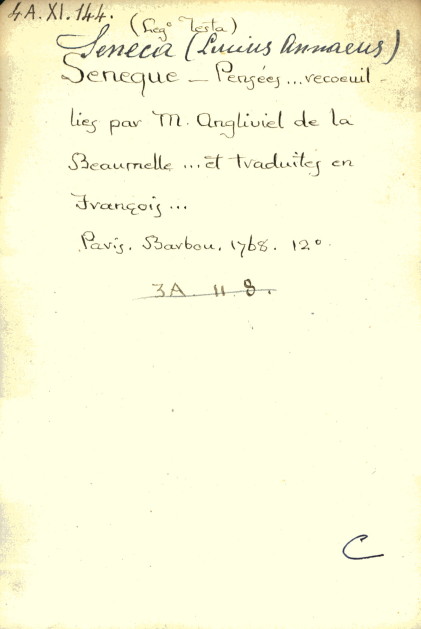 4A.XI.144.
(Leg° Testa)
Seneca (Lucius Annaeus)
Seneque – Pensées ... recoeuil-
lies par M. Angliviel de la
Beaumelle ... et traduites en
François ...
Paris. Barbou. 1768. 12°.
3A. 11. 8.
C